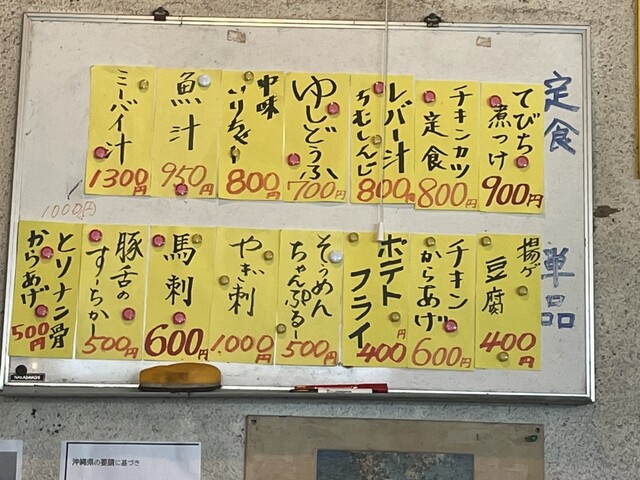 定食
てびち
煮つけ
900円
チキンカツ
定食
800円
レバー汁
ちむしんじ
800円
ゆしどうふ
700円
中味
いりちゃー
800円
魚汁
950円
ミーバイ汁
1300円
1000円
単品
揚げ
豆腐
400円
チキン
からあげ
600円
ポテト
フライ
400円
そうめん
ちゃんぷるー
500円
やぎ刺
1000円
馬刺
600円
豚舌の
すーちかー
500円
とりナン骨
からあげ
500円
沖縄県の要請に基づき